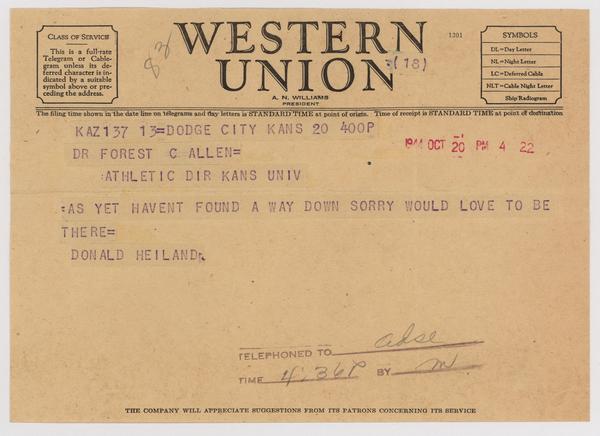 CLASS OF SERVICE
This is a full-rate
Telegram or Cable-
gram unless its de-
ferred character is in-
dicated by a suitable
symbol above or pre-
ceding the address.
82
WESTERN
UNION
1201
(18)
A. N. WILLIAMS
PRESIDENT
SYMBOLS
DL=Day Letter
NL=Night Letter
LC=Deferred Cable
NLT=Cable Night Letter
Ship Radiogram
The filing time shown in the date line on telegrams and day letters is STANDARD TIME at point of origin. Time of receipt is STANDARD TIME at point of destination
KAZ137 13=DODGE CITY KANS 20 400P
1944 OCT 20 PM 4 22
DR FOREST C ALLEN=
:ATHLETIC DIR KANS UNIV
:AS YET HAVENT FOUND A WAY DOWN SORRY WOULD LOVE TO BE
THERE=
DONALD HEILAND
TELEPHONED TO
TIME 4:36P BY m
THE COMPANY WILL APPRECIATE SUGGESTIONS FROM ITS PATRONS CONCERNING ITS SERVICE